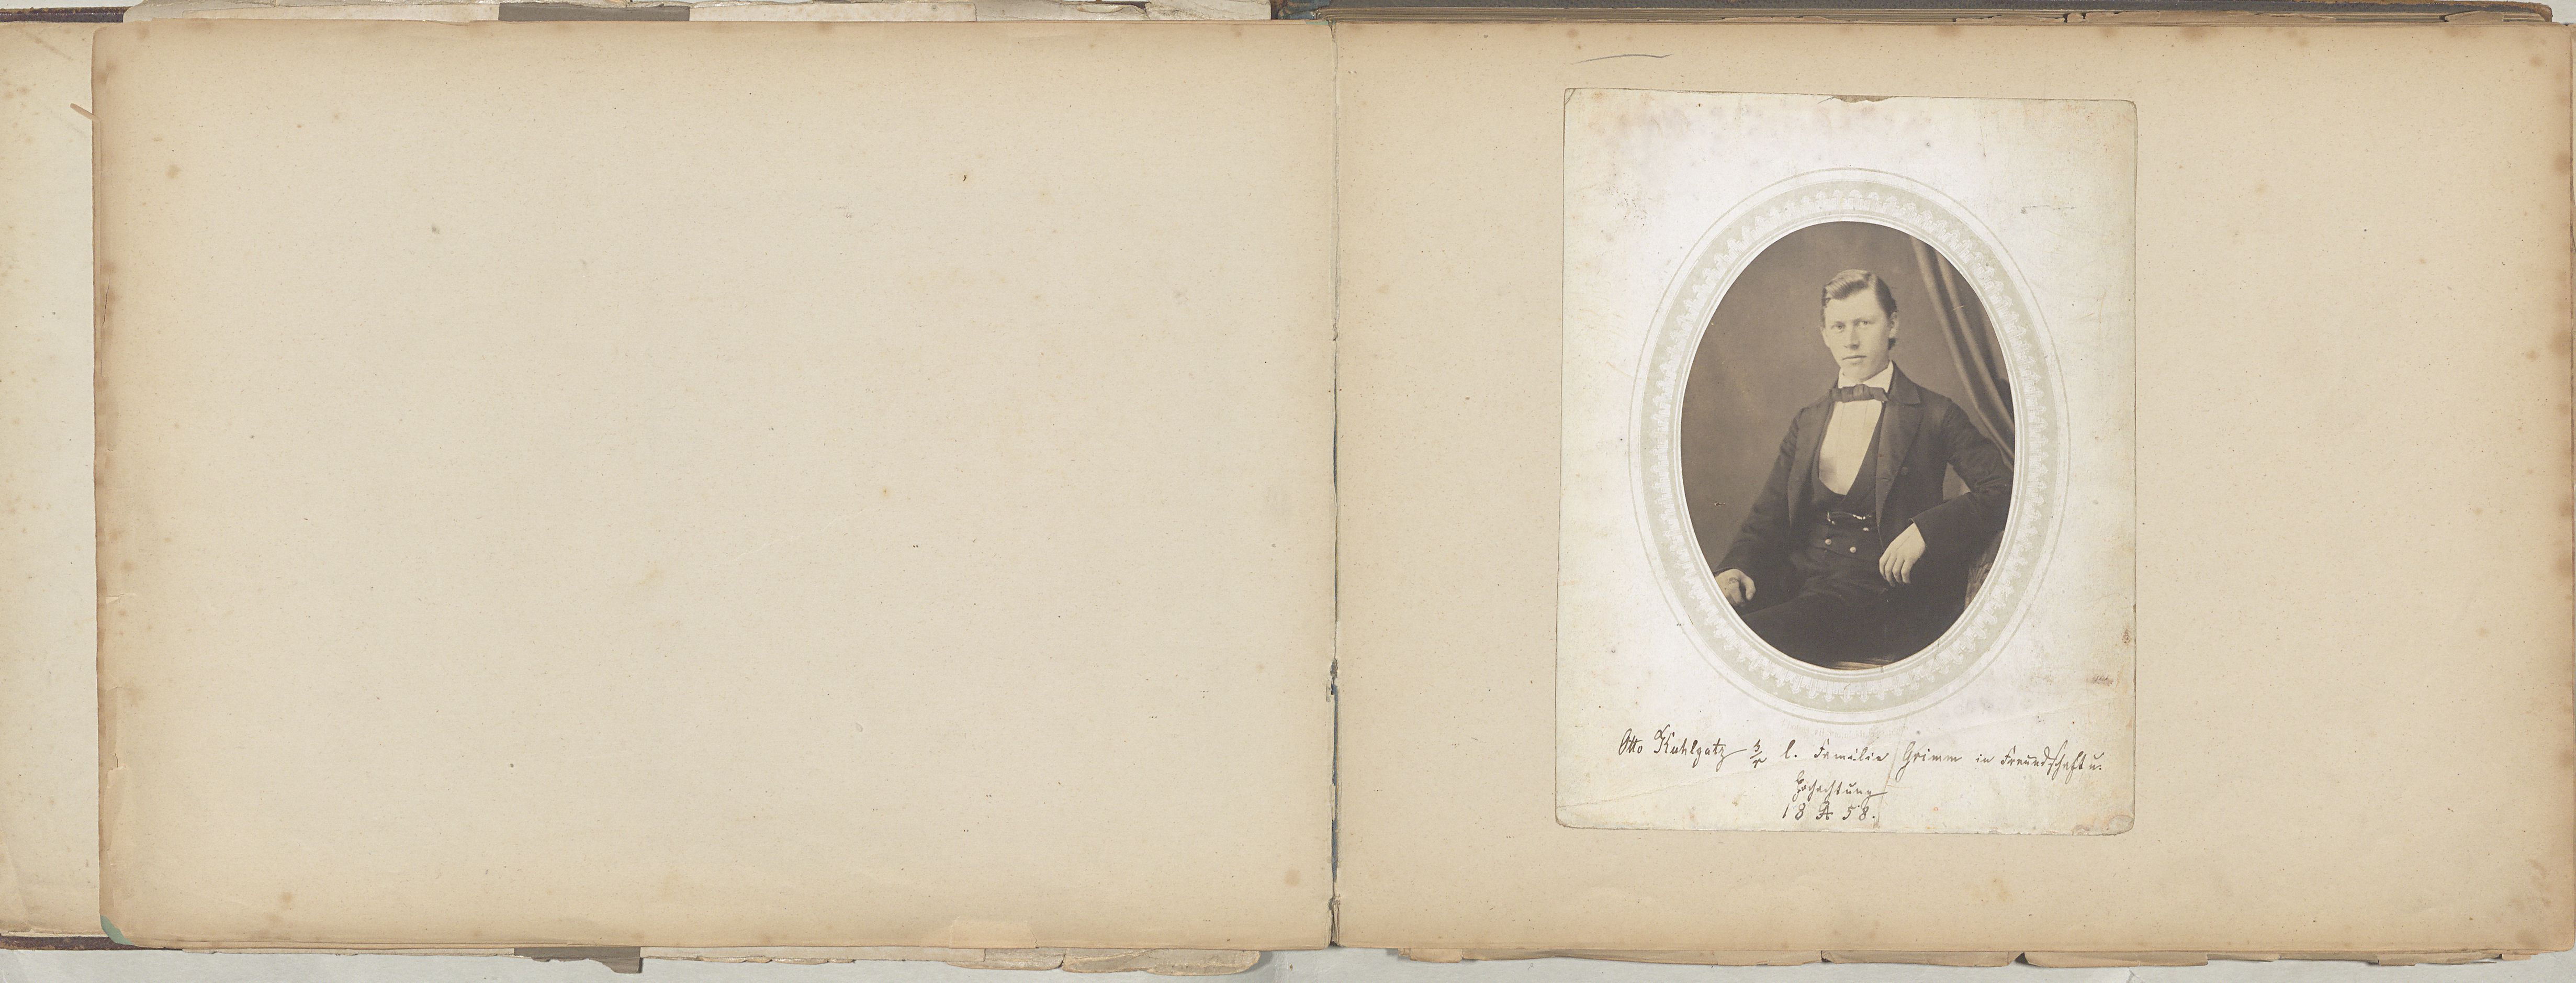 Otto Kuhlgatz s/r l. Familie Grimm in Freundschaft u.
Hochachtung
18 A 58.